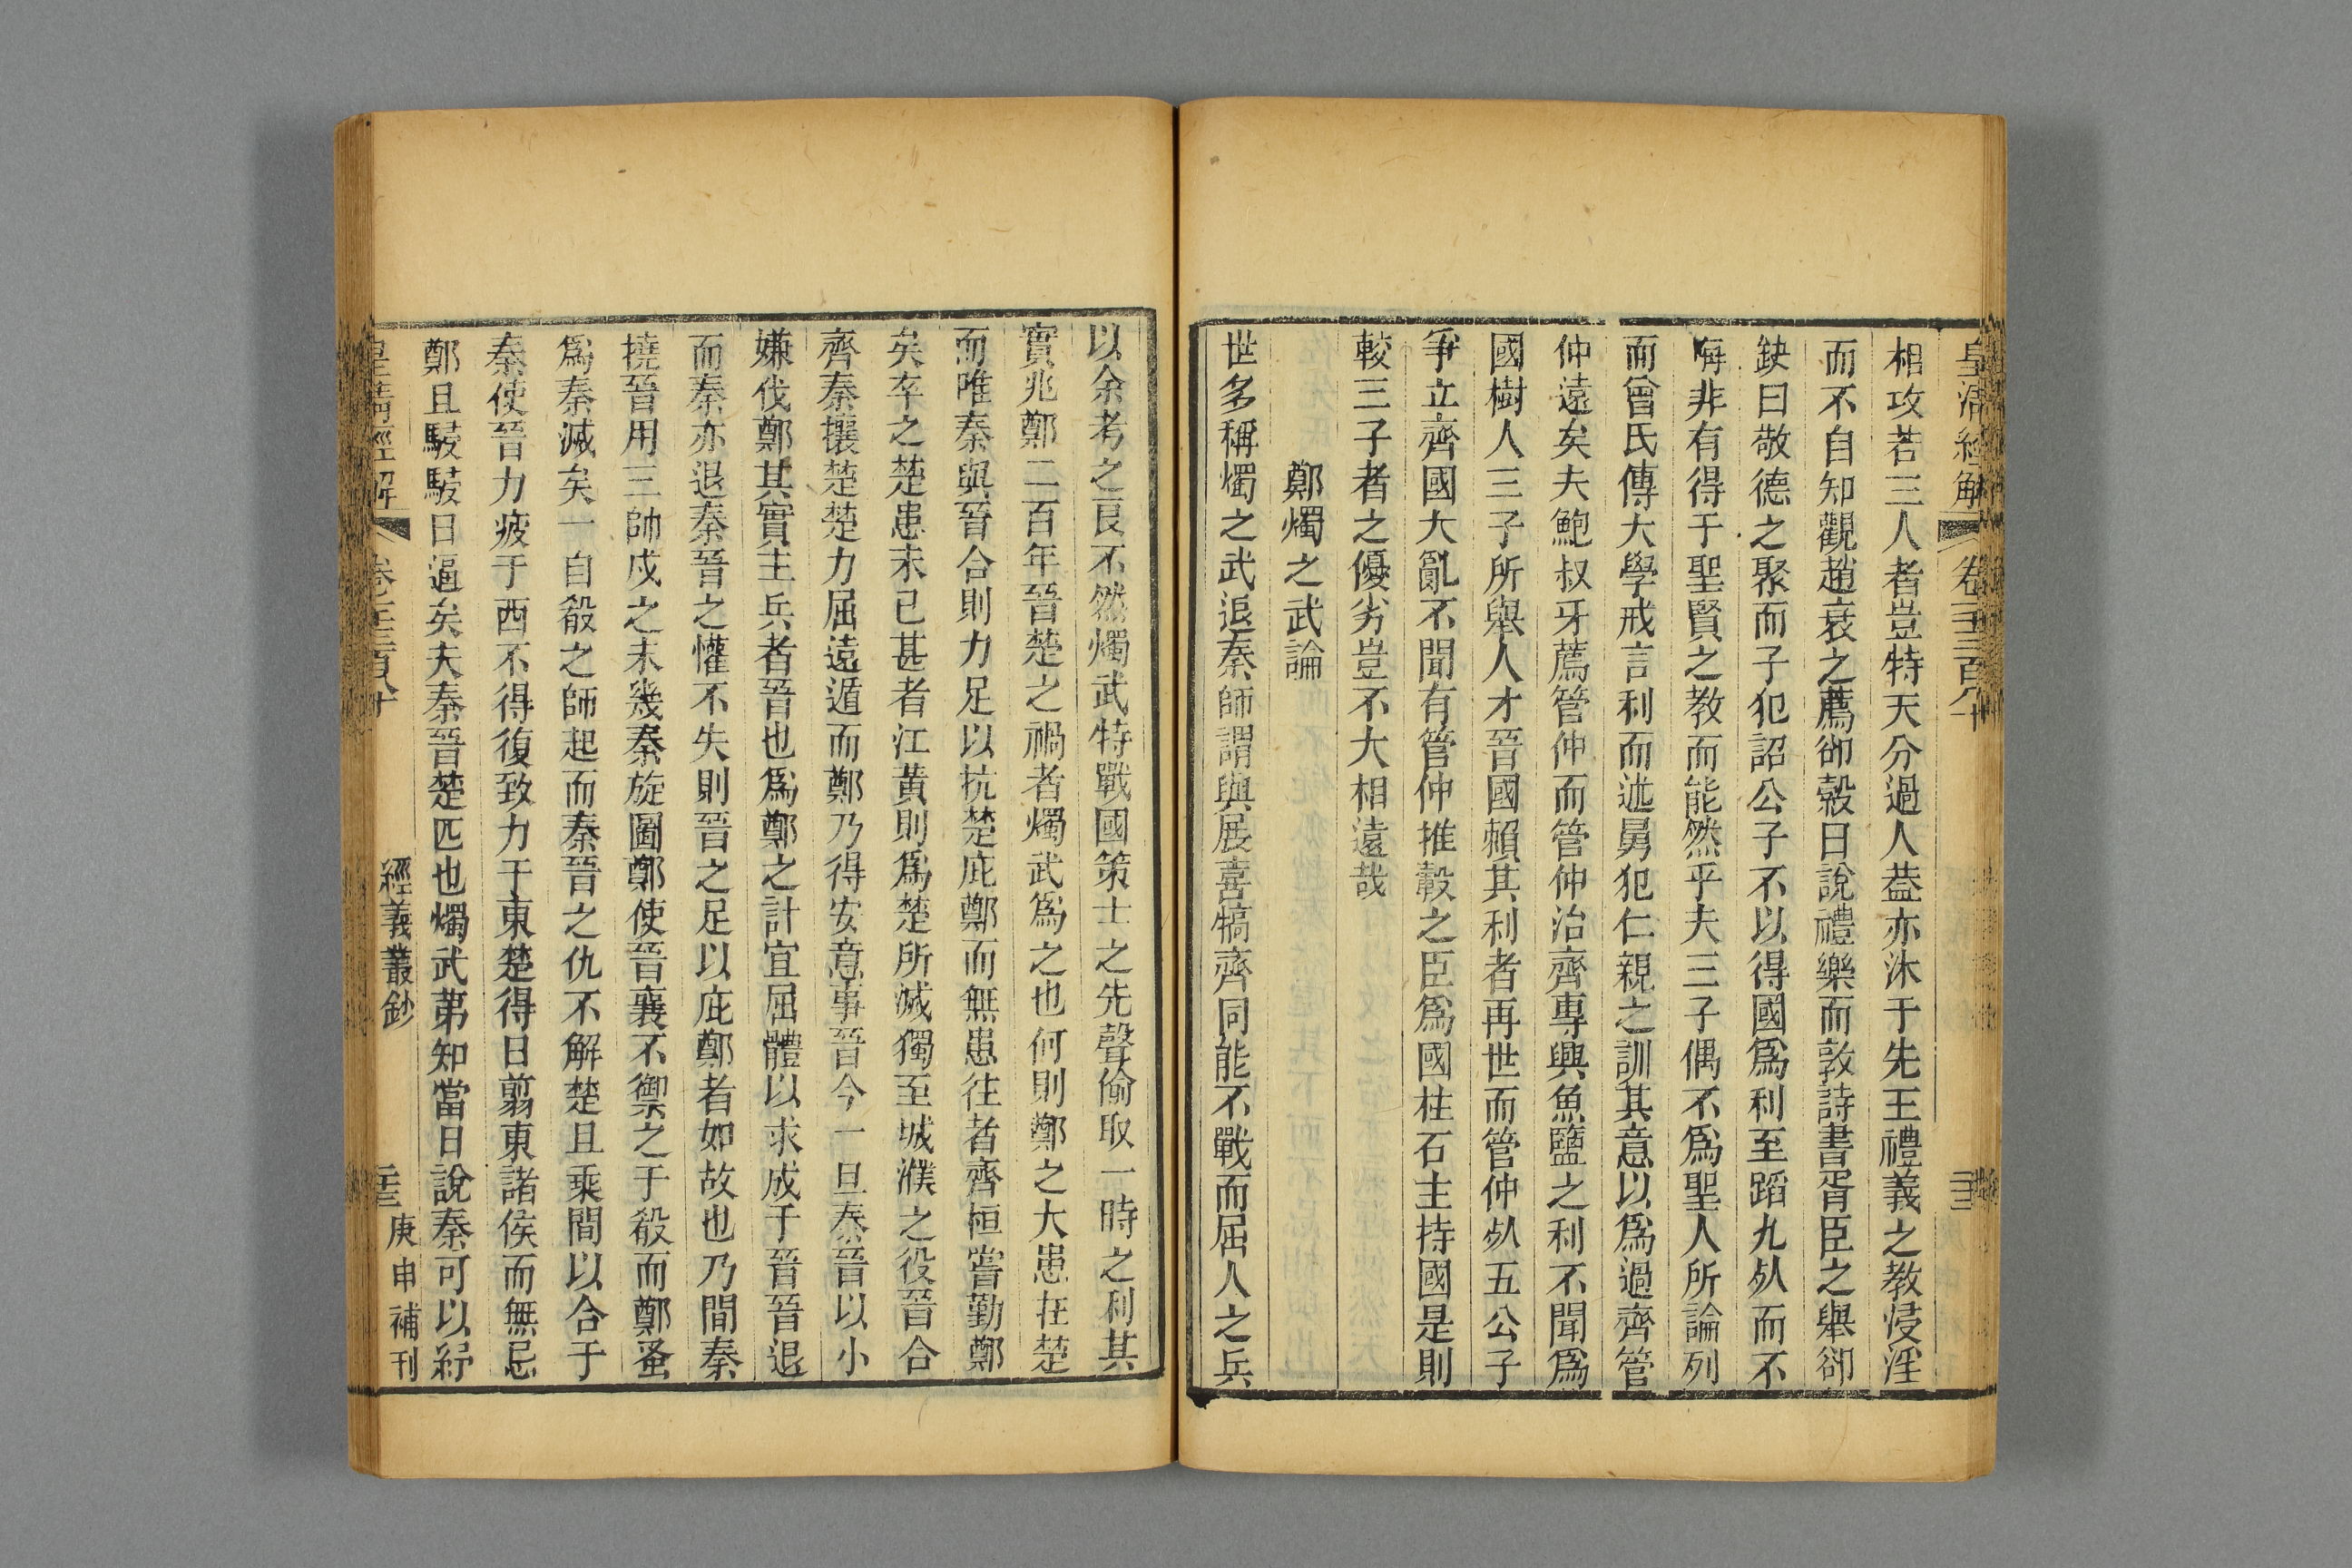 皇清經解
卷一千三百八十
相攻若三人者豈特天分過人葢亦沐于先王禮義之教浸淫
而不自知觀趙衰之薦郤縠曰說禮樂而敦詩書胥臣之舉郤
缺曰敬德之聚而子犯詔公子不以得國爲利至蹈九死而不
悔非有得于聖賢之教而能然乎夫三子偶不爲聖人所論列
而曾氏傳大學戒言利而述舅犯仁親之訓其意以爲過齊管
仲遠矣夫鮑叔牙薦管仲而管仲治齊專興魚鹽之利不聞爲
國樹人三子所舉人才晉國賴其利者再世而管仲死五公子
爭立齊國大亂不聞有管仲推轂之臣爲國柱石主持國是則
較三子者之優劣豈不大相遠哉
鄭燭之武論
世多稱燭之武退秦師謂與展喜犒齊同能不戰而屈人之兵
以余考之良不然燭武特戰國策士之先聲偷取一時之利其
實兆鄭二百年晉楚之禍者燭武爲之也何則鄭之大患在楚
而唯秦與晉合則力足以抗楚庇鄭而無患往者齊桓嘗勤鄭
矣卒之楚患未已甚者江黃則爲楚所滅獨至城濮之役晉合
齊秦攘楚楚力屈遠遁而鄭乃得安意事晉今一旦秦晉以小
嫌伐鄭其實主兵者晉也爲鄭之計宜屈體以求成于晉晉退
而秦亦退秦晉之懽不失則晉之足以庇鄭者如故也乃間秦
撓晉用三帥戍之未幾秦旋圖鄭使晉襄不禦之于殽而鄭蚤
爲秦滅矣一自殽之師起而秦晉之仇不解楚且乘間以合于
秦使晉力疲于西不得復致力于東楚得日翦東諸侯而無忌
鄭且駸駸日逼矣夫秦晉楚匹也燭武第知當日說秦可以紓
皇清經解
卷一千三百八十
經義叢鈔
庚申補刊